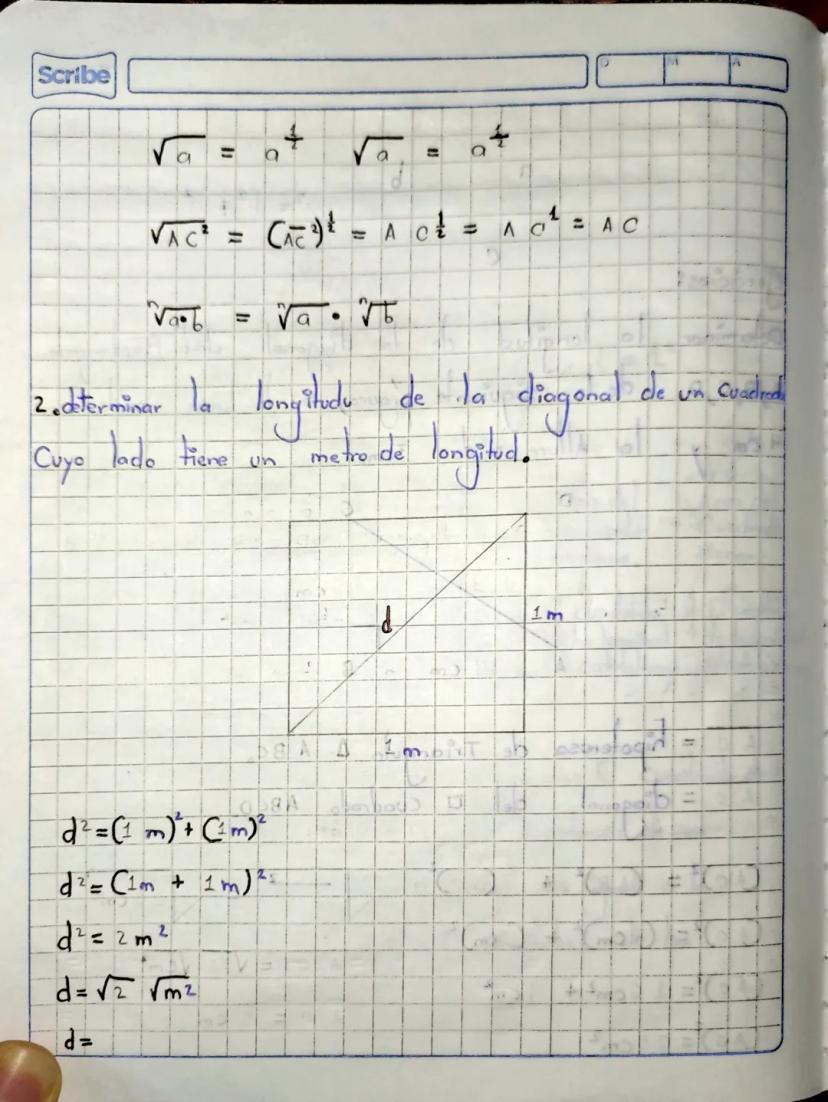 Scribe
D M A
√a = a^½ √a = a^½
√AC² = (AC²)^½ = A C½ = A C¹ = A C
ⁿ√a·b = ⁿ√a · ⁿ√b
2. determinar la longitudu de la diagonal de un cuadrado
Cuyo lado tiene un metro de longitud.
d
1m
1m
d² = (1 m)² + (1m)²
d² = (1m + 1m)²
d² = 2 m²
d = √2 √m²
d =